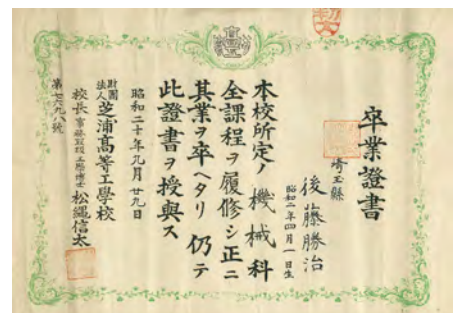 卒業證書
埼玉縣
後藤勝治
昭和二年四月一日生
本校所定ノ機械科
全課程ヲ履修シ正ニ
其業ヲ卒ヘタリ仍テ
此證書ヲ授與ス
昭和二十年九月廿九日
財團法人芝浦高等工學校
校長事務取扱工學博士松繩信太
第七六九八號